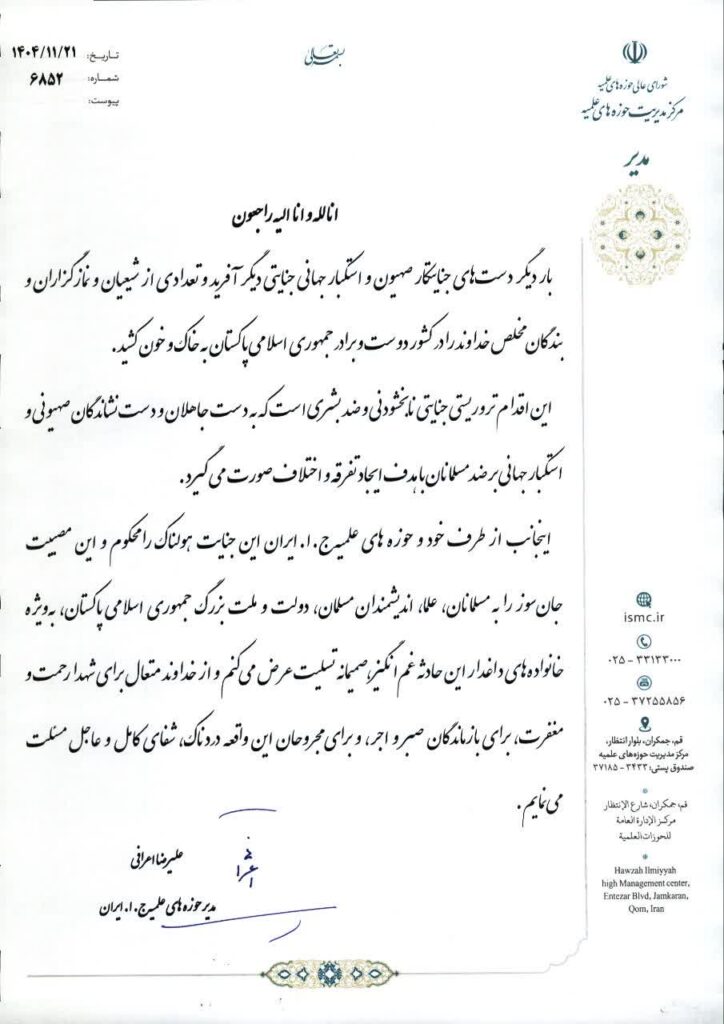 بسمه تعالی
تاریخ: ۱۴۰۴/۱۱/۲۱
شماره: ۶۸۵۲
پیوست:
شورای عالی حوزه های علمیه
مرکز مدیریت حوزه های علمیه
مدیر
انا لله و انا الیه راجعون
بار دیگر دست‌های جنایتکار صهیون و استکبار جهانی جنایتی دیگر آفرید و تعدادی از شیعیان و نمازگزاران و
بندگان مخلص خداوند را در کشور دوست و برادر جمهوری اسلامی پاکستان به خاک و خون کشید.
این اقدام تروریستی جنایتی نابخشودنی و ضد بشری است که به دست جاهلان و دست نشاندگان صهیونی و
استکبار جهانی بر ضد مسلمانان با هدف ایجاد تفرقه و اختلاف صورت می گیرد.
اینجانب از طرف خود و حوزه های علمیه ج.ا.ایران این جنایت هولناک را محکوم و این مصیبت
جان‌سوز را به مسلمانان، علما، اندیشمندان مسلمان، دولت و ملت بزرگ جمهوری اسلامی پاکستان، به‌ویژه
خانواده‌های داغدار این حادثه غم انگیز، صمیمانه تسلیت عرض می‌کنم و از خداوند متعال برای شهدا رحمت و
مغفرت، برای بازماندگان صبر و اجر، و برای مجروحان این واقعه دردناک، شفای کامل و عاجل مسئلت
می‌نمایم.
علیرضا اعرافی
مدیر حوزه های علمیه ج.ا.ایران
ismc.ir
۰۲۵ - ۳۳۱۳۳۰۰۰
۰۲۵ - ۳۷۲۵۵۸۵۶
قم، جمکران، بلوار انتظار،
مرکز مدیریت حوزه‌های علمیه
صندوق پستی: ۳۴۳۳ - ۳۷۱۸۵
قم، جمکران، شارع الإنتظار
مرکز الإدارة العامة
للحوزات العلمية
Hawzah Ilmiyyah
high Management center,
Entezar Blvd, Jamkaran,
Qom, Iran